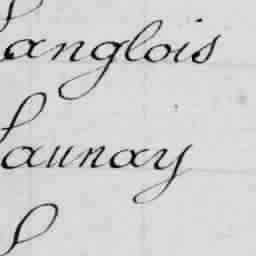 Langlois
Launay